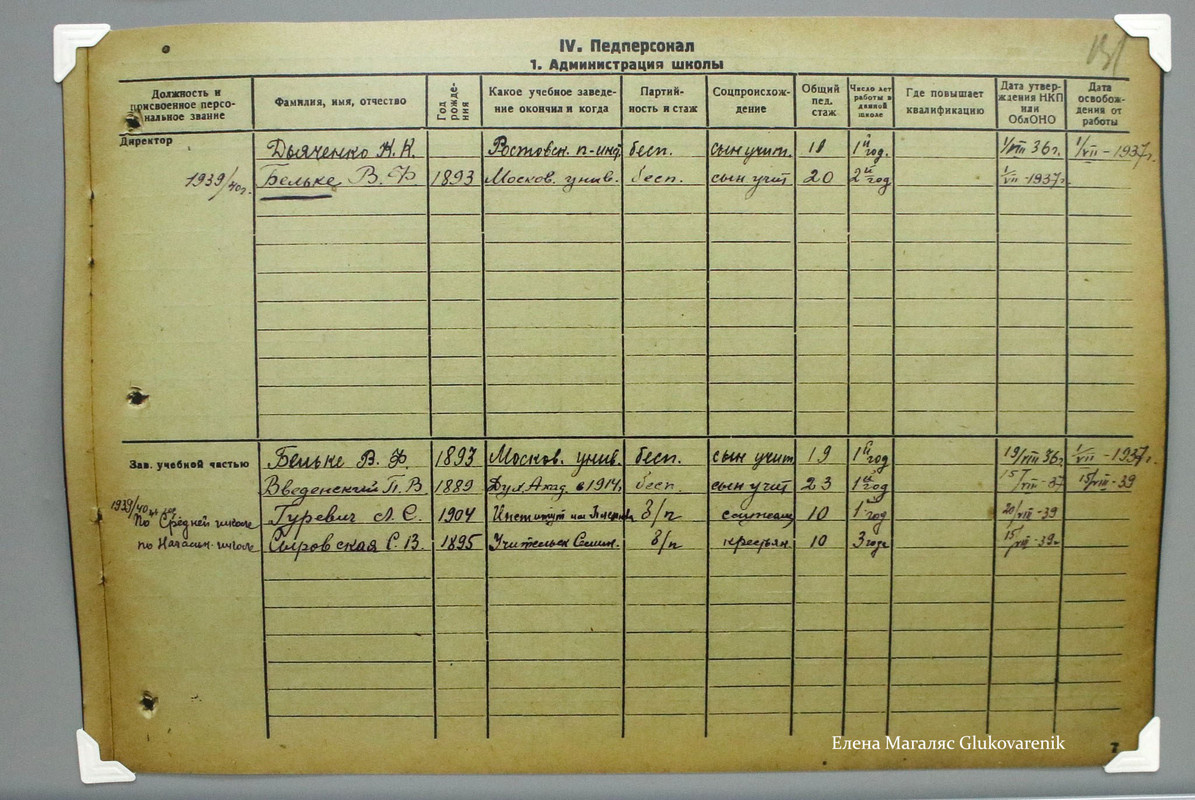 IV. Педперсонал
1. Администрация школы
Должность и присвоенное персональное звание | Фамилия, имя, отчество | Год рождения | Какое учебное заведение окончил и когда | Партийность и стаж | Соцпроисхождение | Общий пед. стаж | Число лет работы в данной школе | Где повышает квалификацию | Дата утверждения НКП или ОблОНО | Дата освобождения от работы
Директор
Дьяченко Н. К. Ростовск. п-инст. бесп. сын учит. 18 1й год. 1/VIII 36 г. 1/VII - 1937 г.
1939/40 г. Бельке В. Ф. 1893 Москов. унив. бесп. сын учит 20 2й год 1/VII - 1937 г.
Зав. учебной частью Бельке В. Ф. 1893 Москов. унив. бесп. сын учит 19 1й год 19/VIII 36 г. 1/VII - 1937 г.
Введенский П. В 1889 Дух Акад. в 1914 г. бесп. сын учит 23 1й год 15/VIII - 37 15/VIII - 39
1939/40
по Средней школе Гуревич Л. С. 1904 Институт им 8/п служащ 10 1й год 20/VIII - 39
по Начальн. школе Сыровская С. В. 1895 Учительск Семин. б/п крестьян. 10 3 года 15/VIII - 39 г.
Елена Магаляс Glukovarenik
7